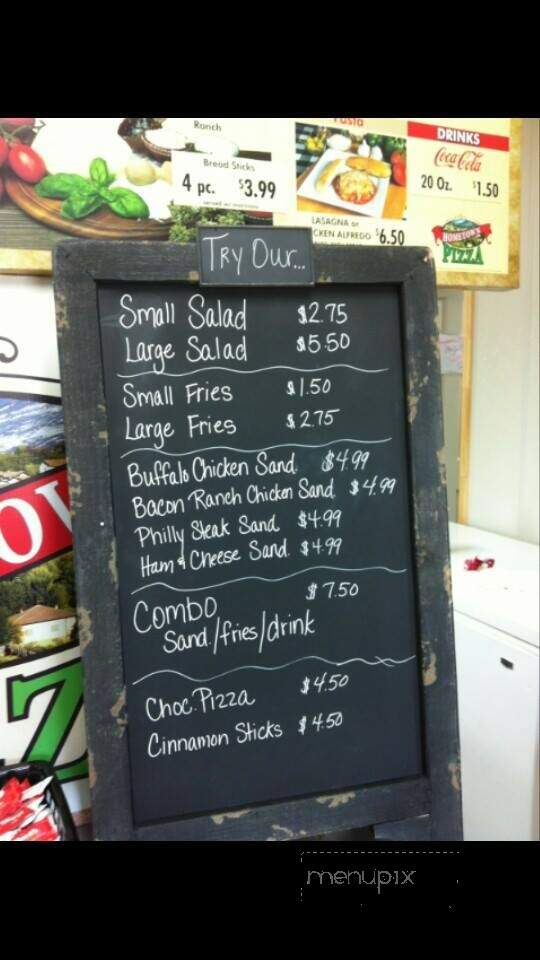 Ranch
Bread Sticks
4 pc. $3.99
Pasta
LASAGNA or
CKEN ALFREDO $6.50
DRINKS
Coca-Cola
20 Oz. $1.50
HOMETOWN
PIZZA
TRY OUR...
Small Salad $2.75
Large Salad $5.50
Small Fries $1.50
Large Fries $2.75
Buffalo Chicken Sand. $4.99
Bacon Ranch Chicken Sand. $4.99
Philly Steak Sand. $4.99
Ham & Cheese Sand. $4.99
Combo $7.50
Sand./fries/drink
Choc. Pizza $4.50
Cinnamon Sticks $4.50
menupix